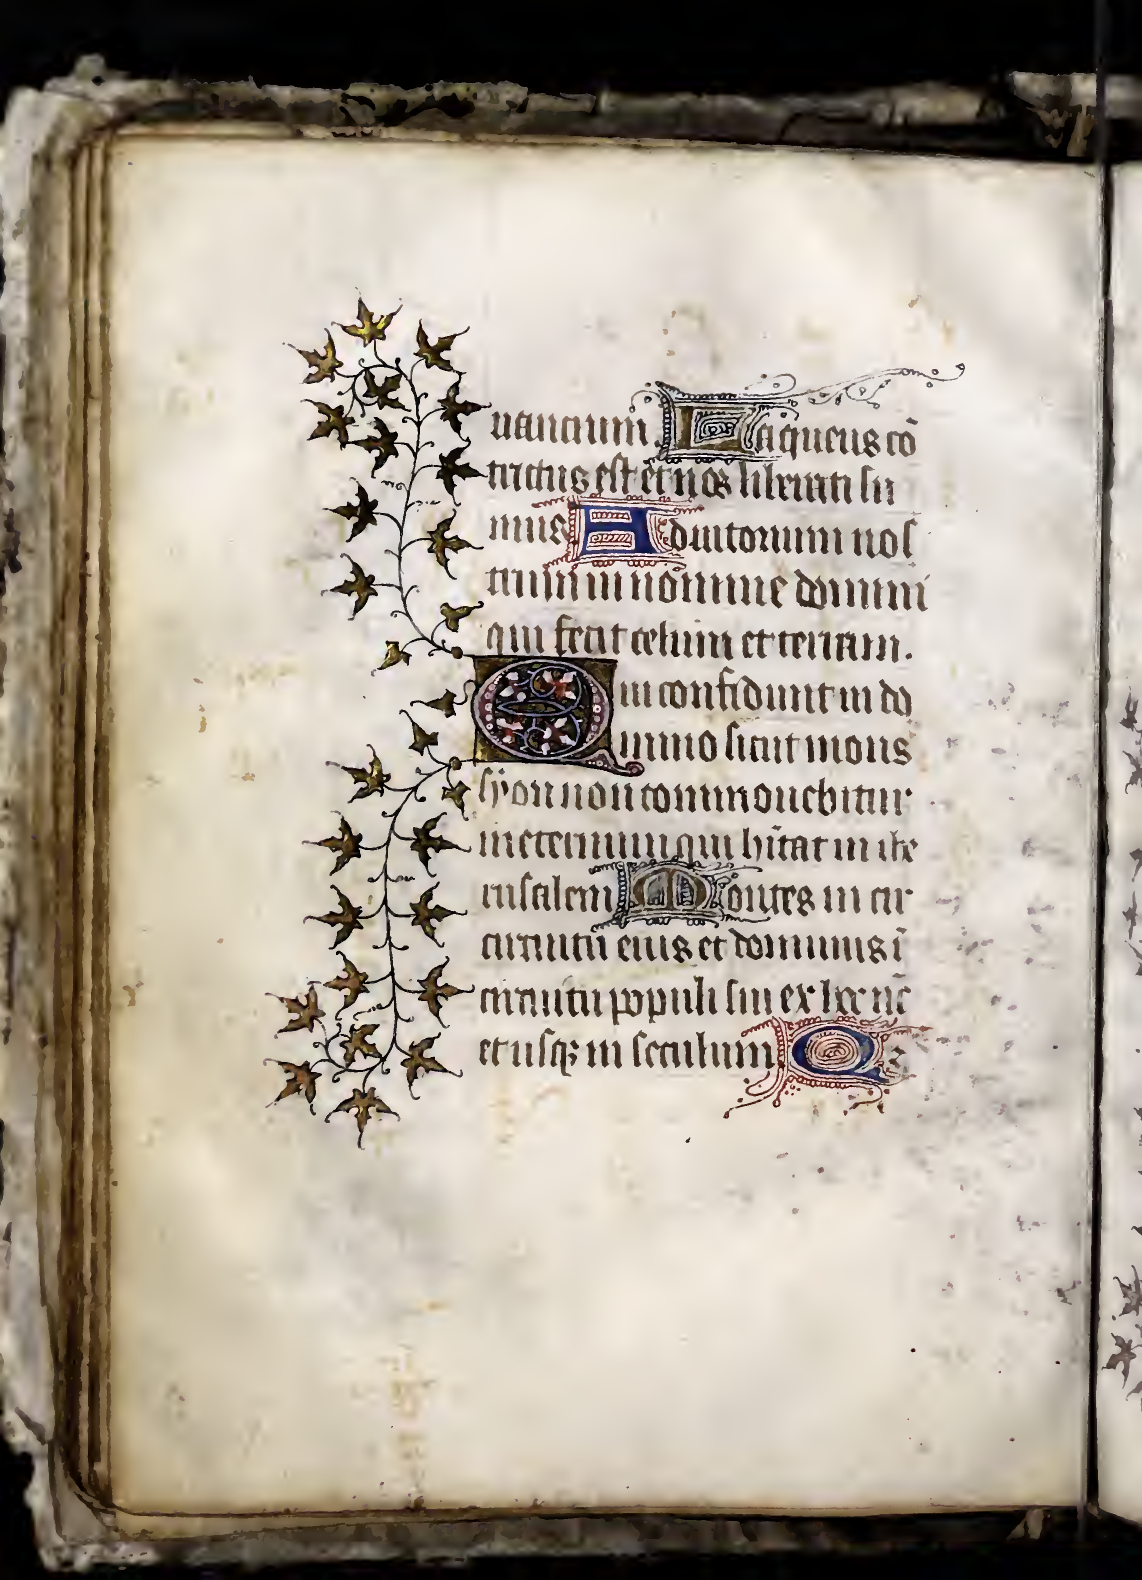 nantium. Laqueus cō
tritus est et nos liberati su
mus Adiutorium nos
trum in nomine domini
qui fecit celum et terram.
Qui confidunt in do
mino sicut mons
syon non commouebitur
in eternum qui hītat in ihe
rusalem Montes in cir
circuitu eius et dominus ī
circuitu populi sui ex hoc nūc
et usqꝫ in seculum Qꝫ